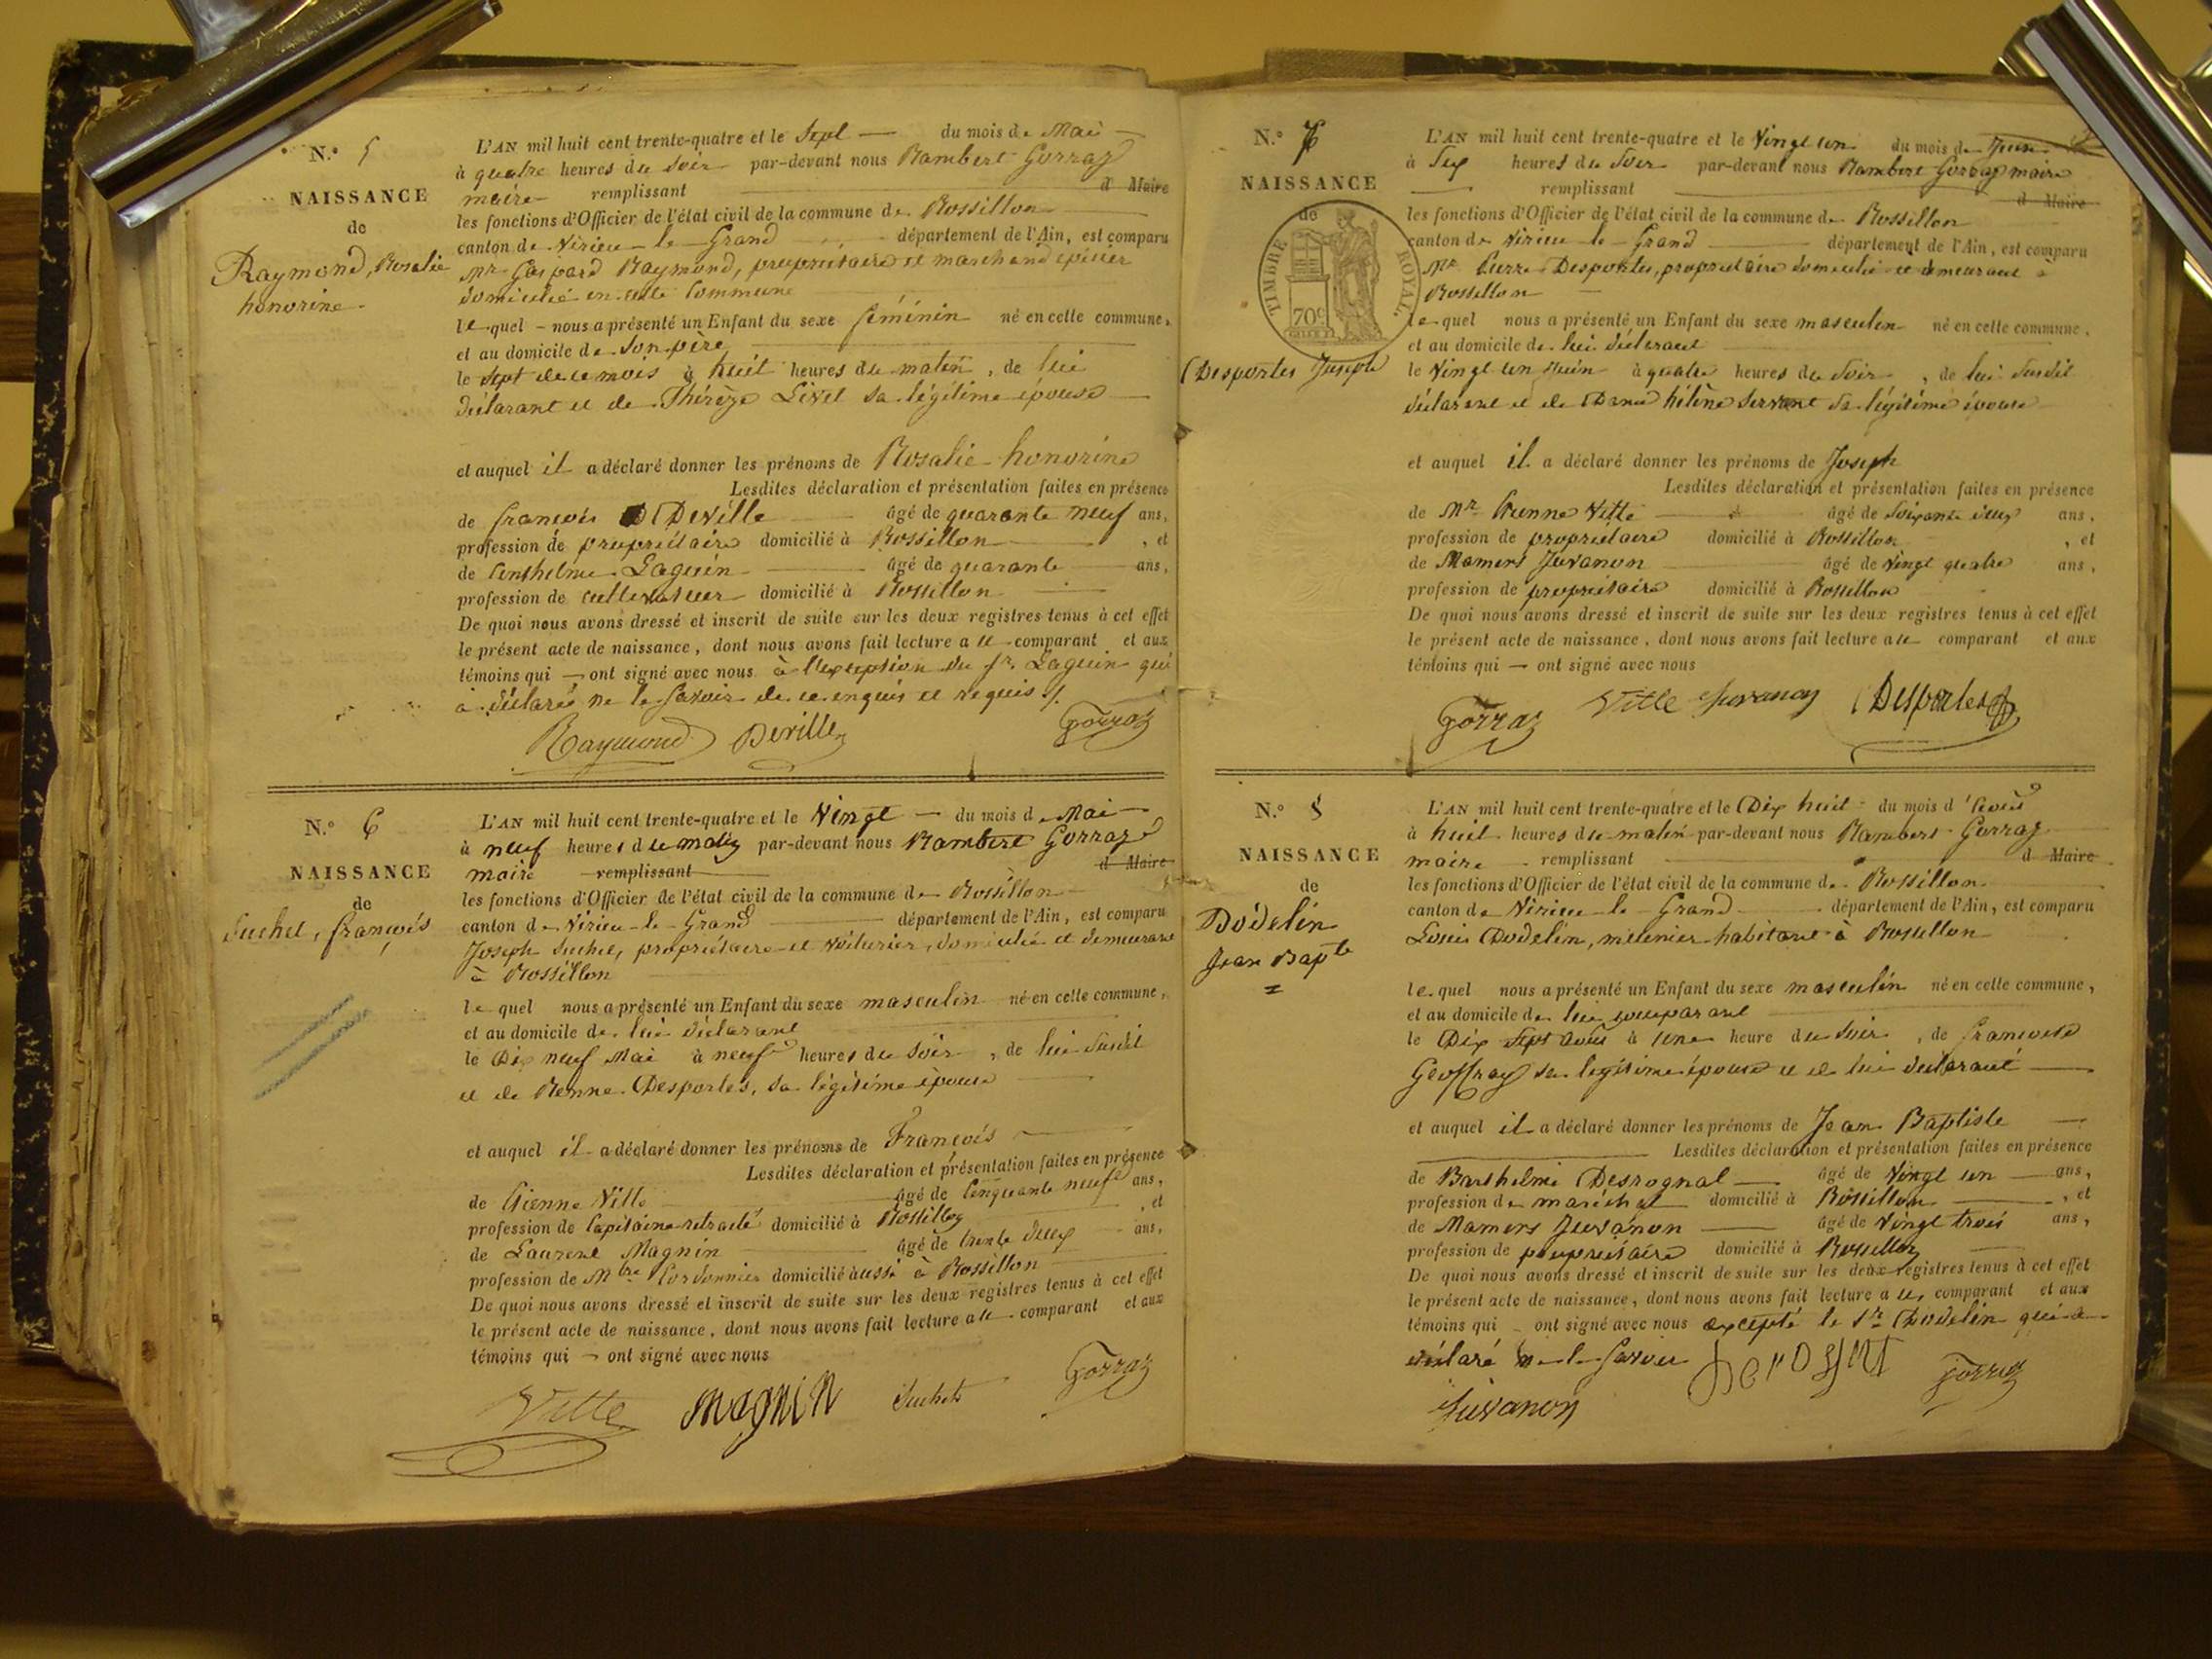 N.º 5
NAISSANCE
de
Raymond, Rosalie
honorine
L'AN mil huit cent trente-quatre et le Sept du mois de Mai
à quatre heures du Soir par-devant nous Rambert Gorraz
maire remplissant d Maire
les fonctions d'Officier de l'état civil de la commune de Rossillon
canton de Virieu-le-Grand département de l'Ain, est comparu
Mr Gaspard Raymond, propriétaire et marchand épicier
domicilié en cette Commune
le quel nous a présenté un Enfant du sexe féminin né en cette commune,
et au domicile de Son père
le Sept de ce mois à huit heures du matin, de lui
déclarant et de Thérèze Livet sa légitime épouse
et auquel il a déclaré donner les prénoms de Rosalie honorine
Lesdites déclaration et présentation faites en présence
de françois Deville âgé de quarante neuf ans,
profession de propriétaire domicilié à Rossillon, et
de Centhelme Laguin âgé de quarante ans,
profession de cultivateur domicilié à Rossillon
De quoi nous avons dressé et inscrit de suite sur les deux registres tenus à cet effet
le présent acte de naissance, dont nous avons fait lecture a le comparant et aux
témoins qui ont signé avec nous à l'exception du Sr. Laguin qui
a déclaré ne le Savoir de ce enquis et requis ./.
Raymond Deville Gorraz
N.º 6
NAISSANCE
de
Suchet, françois
L'AN mil huit cent trente-quatre et le Vingt du mois de Mai
à neuf heures du matin par-devant nous Rambert Gorraz
maire remplissant d Maire
les fonctions d'Officier de l'état civil de la commune de Rossillon
canton de Virieu-le-Grand département de l'Ain, est comparu
Joseph Suchet, propriétaire et voiturier, domicilié et demeurant
à Rossillon
le quel nous a présenté un Enfant du sexe masculin né en cette commune,
et au domicile de lui déclarant
le Dix neuf Mai à neuf heures du Soir, de lui Susdit
et de Benne Desportes, sa légitime épouse
et auquel il a déclaré donner les prénoms de François
Lesdites déclaration et présentation faites en présence
de Etienne Vitte âgé de Cinquante neuf ans,
profession de Capitaine retraité domicilié à Rossillon, et
de Laurent Magnin âgé de trente deux ans,
profession de Mtre Cordonnier domicilié aussi à Rossillon
De quoi nous avons dressé et inscrit de suite sur les deux registres tenus à cet effet
le présent acte de naissance, dont nous avons fait lecture a le comparant et aux
témoins qui ont signé avec nous
Vitte Magnin Suchet Gorraz
N.º 7
NAISSANCE
de
TIMBRE ROYAL
70c
Desportes Joseph
L'AN mil huit cent trente-quatre et le Vingt un du mois de Juin
à Six heures du Soir par-devant nous Rambert Gorraz maire
remplissant d Maire
les fonctions d'Officier de l'état civil de la commune de Rossillon
canton de Virieu-le-Grand département de l'Ain, est comparu
Mr Pierre Desportes, propriétaire domicilié et demeurant à
Rossillon
le quel nous a présenté un Enfant du sexe masculin né en cette commune,
et au domicile de lui déclarant
le Vingt un Juin à quatre heures du Soir, de lui Susdit
déclarant et de Dame hélène Servant Sa légitime épouse
et auquel il a déclaré donner les prénoms de Joseph
Lesdites déclaration et présentation faites en présence
de Mr Etienne Vitte âgé de Soixante deux ans,
profession de propriétaire domicilié à Rossillon, et
de Mamers Juvanon âgé de Vingt quatre ans,
profession de propriétaire domicilié à Rossillon
De quoi nous avons dressé et inscrit de suite sur les deux registres tenus à cet effet
le présent acte de naissance, dont nous avons fait lecture a le comparant et aux
témoins qui ont signé avec nous
Gorraz Vitte Juvanon Desportes
N.º 8
NAISSANCE
de
Dodelin
Jean Bapte
L'AN mil huit cent trente-quatre et le Dix huit du mois d'août
à huit heures du matin par-devant nous Rambert Gorraz
maire remplissant d Maire
les fonctions d'Officier de l'état civil de la commune de Rossillon
canton de Virieu-le-Grand département de l'Ain, est comparu
Louis Dodelin, meunier habitant à Rossillon
le quel nous a présenté un Enfant du sexe masculin né en cette commune,
et au domicile de lui comparant
le Dix Sept août à une heure du Soir, de francoise
Geoffray sa légitime épouse et de lui déclarant
et auquel il a déclaré donner les prénoms de Jean Baptiste
Lesdites déclaration et présentation faites en présence
de Barthelmi Desrognat âgé de Vingt un ans,
profession de maréchal domicilié à Rossillon, et
de Mamers Juvanon âgé de Vingt trois ans,
profession de propriétaire domicilié à Rossillon
De quoi nous avons dressé et inscrit de suite sur les deux registres tenus à cet effet
le présent acte de naissance, dont nous avons fait lecture a le comparant et aux
témoins qui ont signé avec nous excepté le Sr Dodelin qui a
déclaré ne le Savoir
Juvanon Gorraz